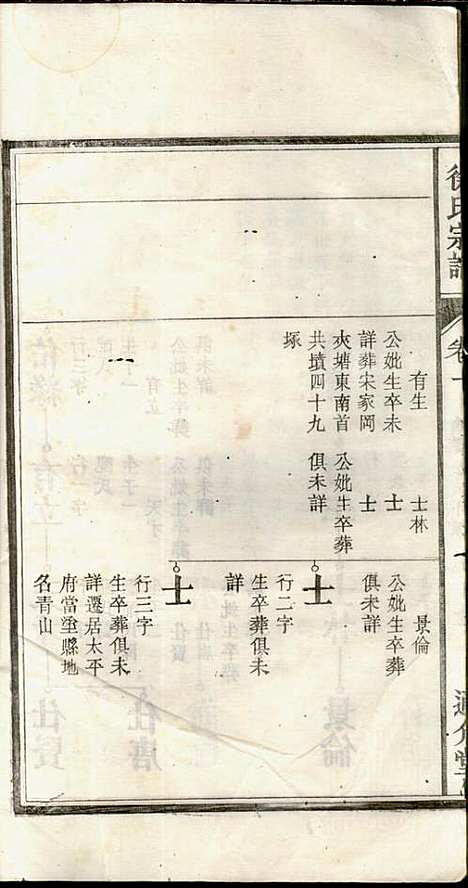 徐氏宗譜
卷一
有生
公妣生卒未
詳葬宋家岡
夾塘東南首
共墳四十九
塚
士林
士
公妣生卒葬
俱未詳
士
景倫
公妣生卒葬
俱未詳
士
行二字
生卒葬俱未
詳
士
行三字
生卒葬俱未
詳遷居太平
府當塗縣地
名青山